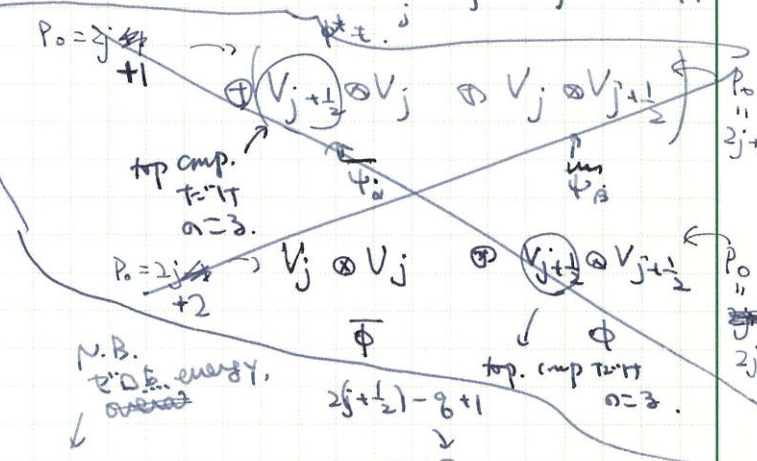 φ*t. j
P₀ = 2j +1 → ⊕( V_{j+½} ⊗ V_j ⊕ V_j ⊗ V_{j+½} ) ← P₀ = 2j+
top cmp. だけ のこる. ψ_α̇ ψ_β̇
P₀ = 2j +2 → V_j ⊗ V_j ⊕ V_{j+½} ⊗ V_{j+½} ← P₀ = 2j
Φ̄ Φ
top. cmp だけ のこる.
N.B.
ゼロ点 energy,
2(j+½) - q + 1